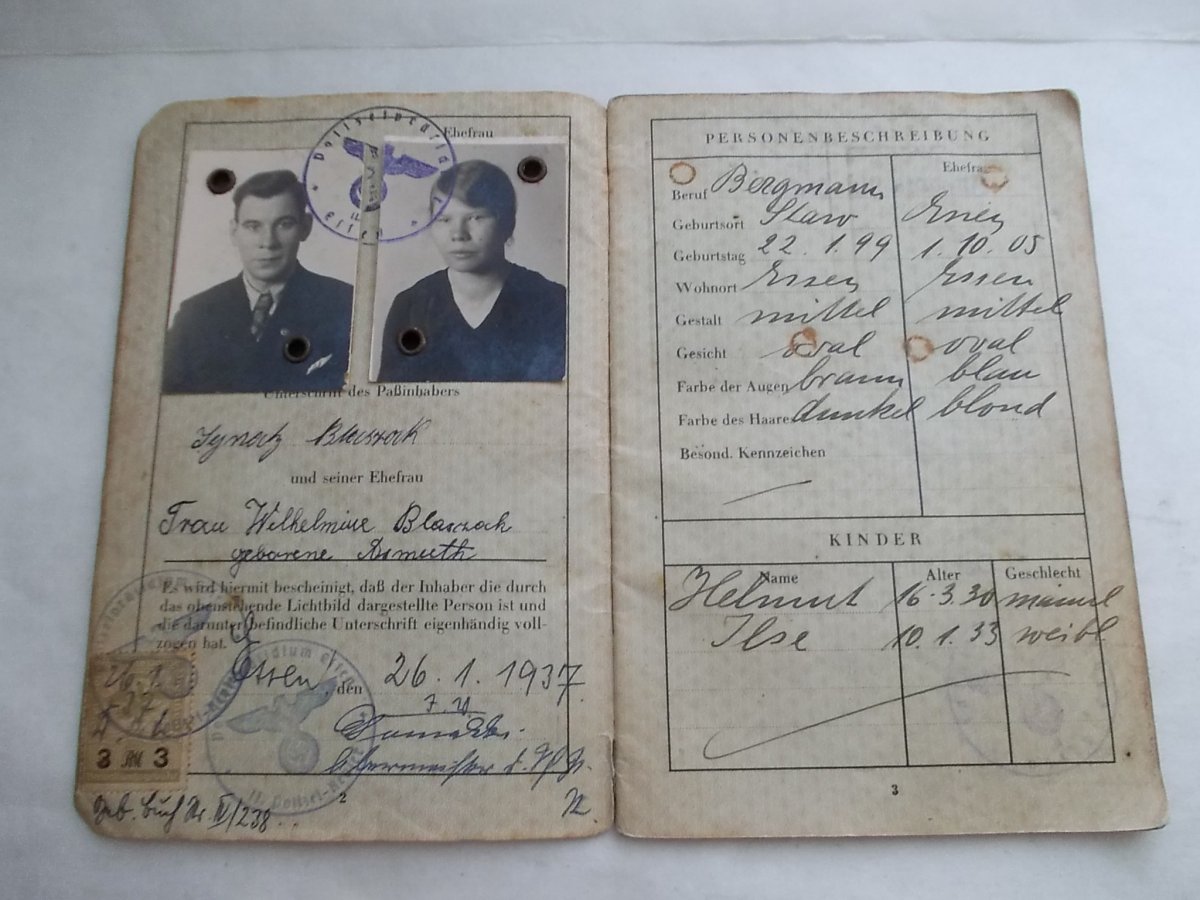 Ehefrau
Unterschrift des Paßinhabers
Ignatz Blaszak
und seiner Ehefrau
Frau Wilhelmine Blaszak
geborene Asmuth
Es wird hiermit bescheinigt, daß der Inhaber die durch
das obenstehende Lichtbild dargestellte Person ist und
die darunter befindliche Unterschrift eigenhändig voll-
zogen hat.
Essen, den 26. 1. 1937
26. 1.
37
3 RM 3
Geb. Buch Nr IV/238
2
PERSONENBESCHREIBUNG
Ehefrau
Beruf Bergmann
Geburtsort Slaw Essen
Geburtstag 22. 1. 99 1. 10. 05
Wohnort Essen Essen
Gestalt mittel mittel
Gesicht oval oval
Farbe der Augen braun blau
Farbe des Haares dunkel blond
Besond. Kennzeichen
KINDER
Name Alter Geschlecht
Helmut 16. 3. 30 männl
Ilse 10. 1. 33 weibl
3